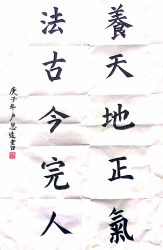 養天地正氣
法古今完人
庚子年盧思遠書